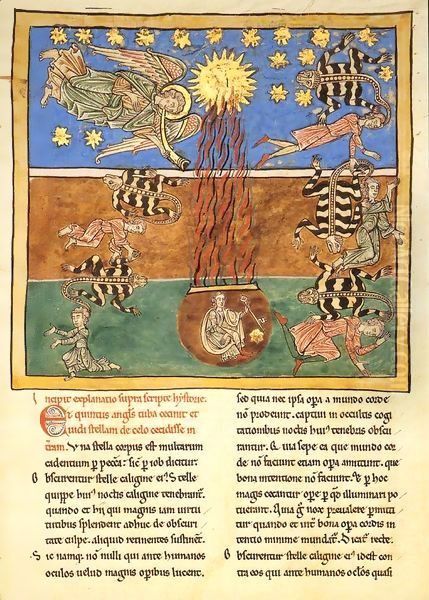 Incipit explanatio supra scripte hystorie.
Et quintus angls tuba cecinit et
vidi stellam de celo cecidisse in
tram. Una stella corpus est multarum
cadentium p pecca; sic p rob dicitur.
Obscurentur stelle caligine ei. Stelle
quippe hui noctis caligine tenebrant.
quando et hii qui magnis iam virtu
tutibus splendent adhuc de obscuri
tate culpe aliquid retinentes sustinet.
Sic namq, nonnulli qui ante humanos
oculos velud magnis opibus lucent.
sed quia nec ipsa opa a mundo corde
non prodeunt. captivi in occultis cogi
tationibus noctis hui tenebris obscu
rantur. Et qui sepe ea que mundo cor
de non faciunt etiam opa amittunt. que
bona intentione non faciunt. Et p hoc
magis cecantur ope p q illuminari po
tuerant. Quia g noce prevalere pmitti
tur quando et int bona opa cordis in
tentio minime mundat. Dicat recte.
Obscurentur stelle caligine ei idest con
tra eos qui ante humanos oclos quasi